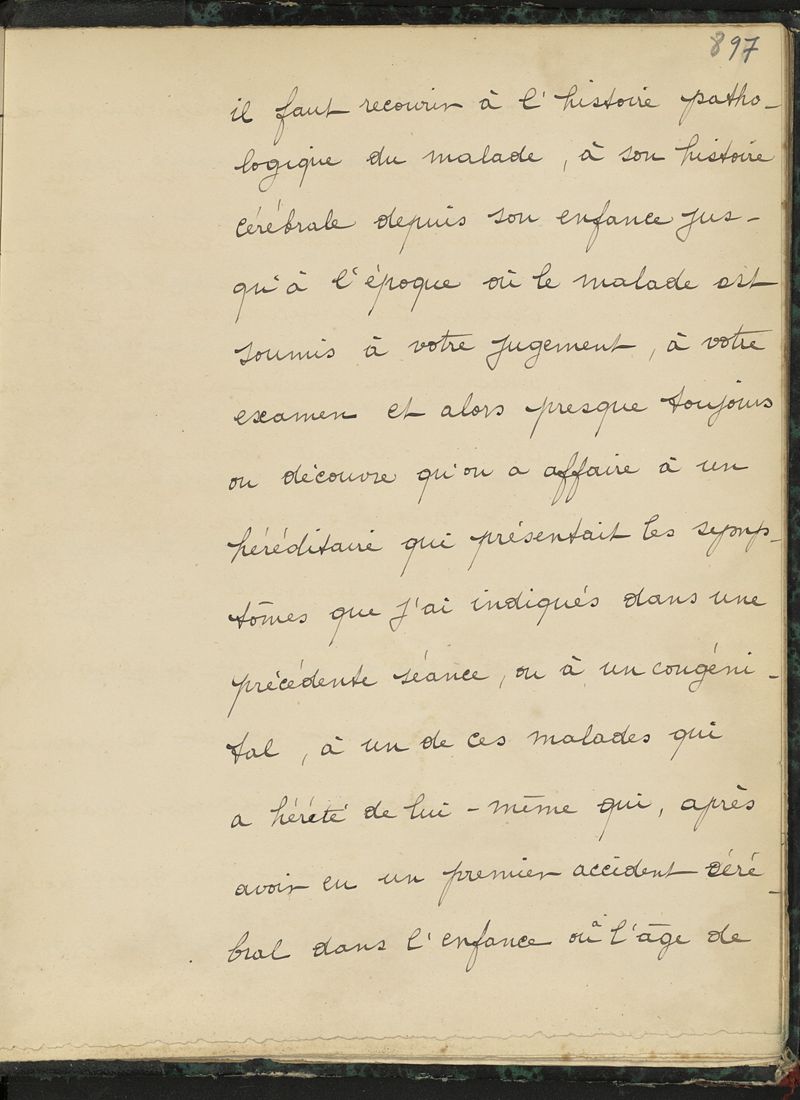 897
il faut recourir à l'histoire patho-
logique du malade, à son histoire
cérébrale depuis son enfance jus-
qu'à l'époque où le malade est
soumis à votre jugement, à votre
examen et alors presque toujours
on découvre qu'on a affaire à un
héréditaire qui présentait les symp-
tômes que j'ai indiqués dans une
précédente séance, ou à un congéni-
tal, à un de ces malades qui
a hérété de lui-même qui, après
avoir eu un premier accident céré-
bral dans l'enfance ou à l'âge de